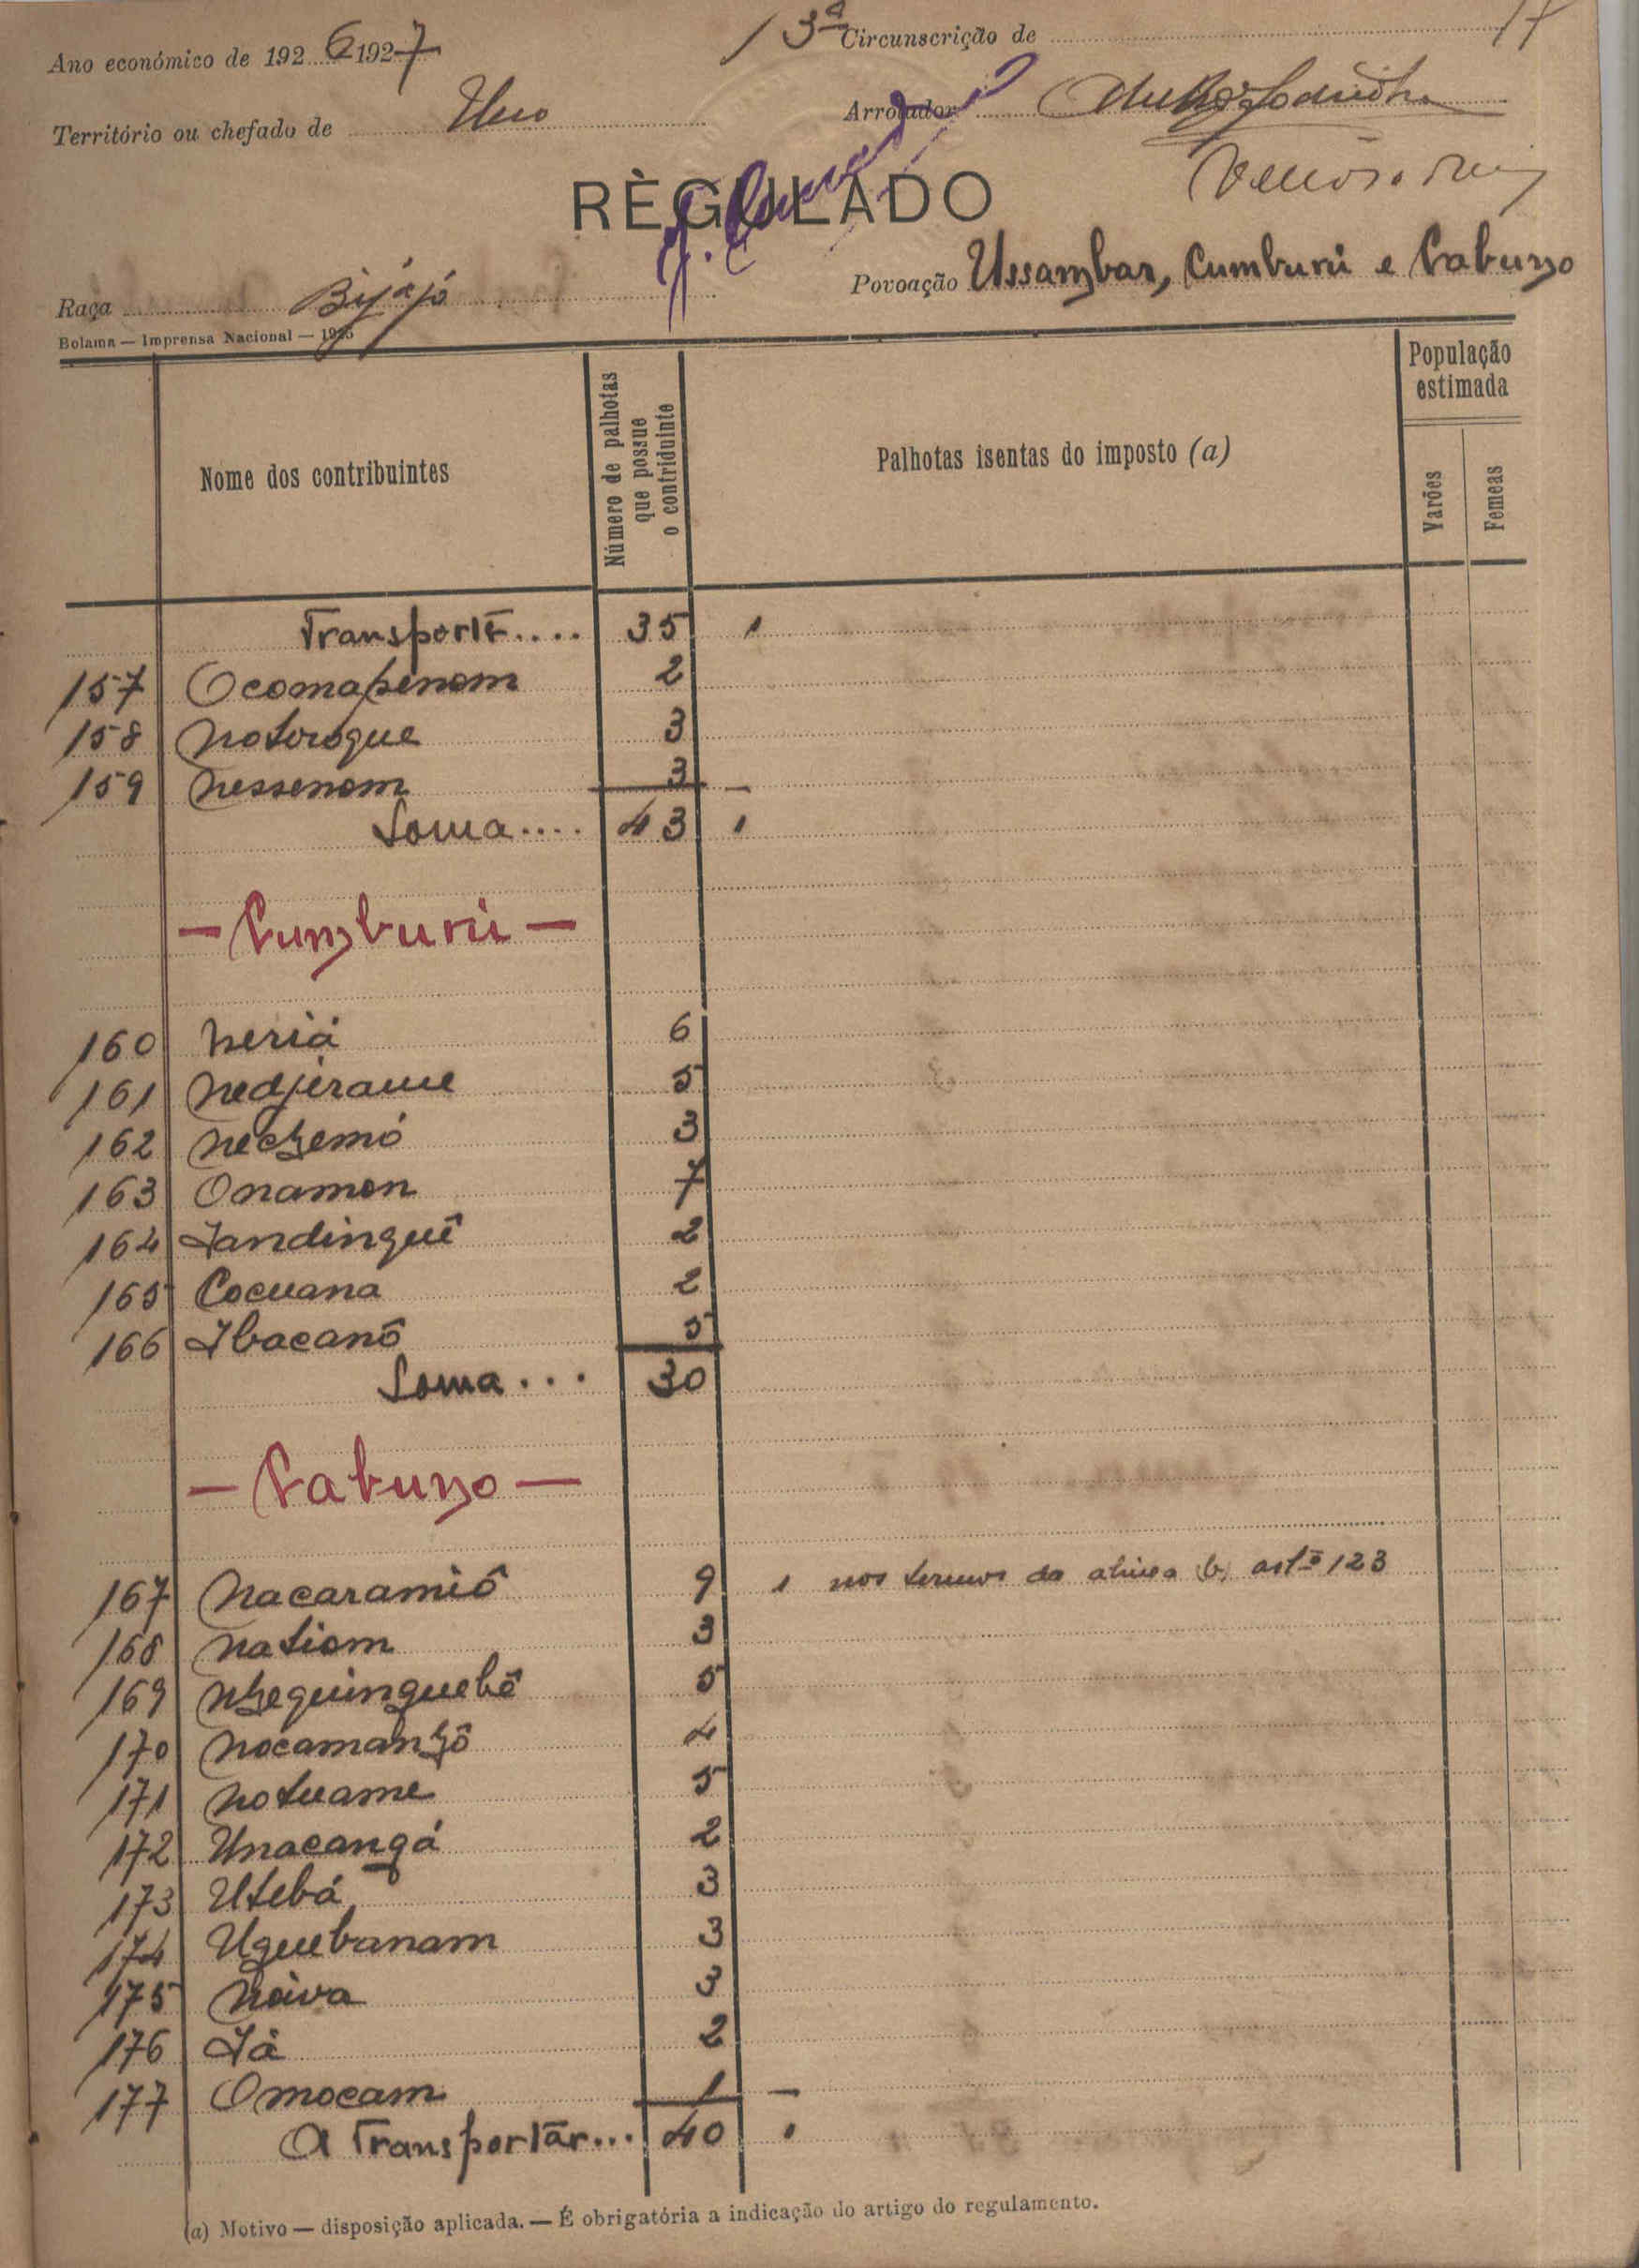 13ª Circunscrição de 17
Ano económico de 1926 1927
Território ou chefado de Uno
Arrolador
RÈGULADO
Raça Bijajó
Povoação Ussambar, Cumburú e Cabuno
Bolama — Imprensa Nacional — 1925
Nome dos contribuintes
Número de palhotas que possue o contriduinte
Palhotas isentas do imposto (a)
População estimada
Varões
Femeas
Transporte.... 35 1
157 Ocomapenom 2
158 Notoroque 3
159 Nessenom 3 —
Soma.... 43 1
— Cumburú —
160 Neriá 6
161 Nedjerame 5
162 Nezemó 3
163 Onamon 7
164 Jandinguê 2
165 Cocuana 2
166 Ibacanô 5
Soma... 30
— Cabuno —
167 Nacaramiô 9 1 nos termos da alinea (b) artº 123
168 Natiom 3
169 Nzequinguebê 5
170 Nocamanzô 4
171 Notuame 5
172 Unacangá 2
173 Utebá 3
174 Uguebanam 3
175 Naiva 3
176 Já 2
177 Omocam 1 —
A Transportar... 40 1
(a) Motivo — disposição aplicada. — É obrigatória a indicação do artigo do regulamento.